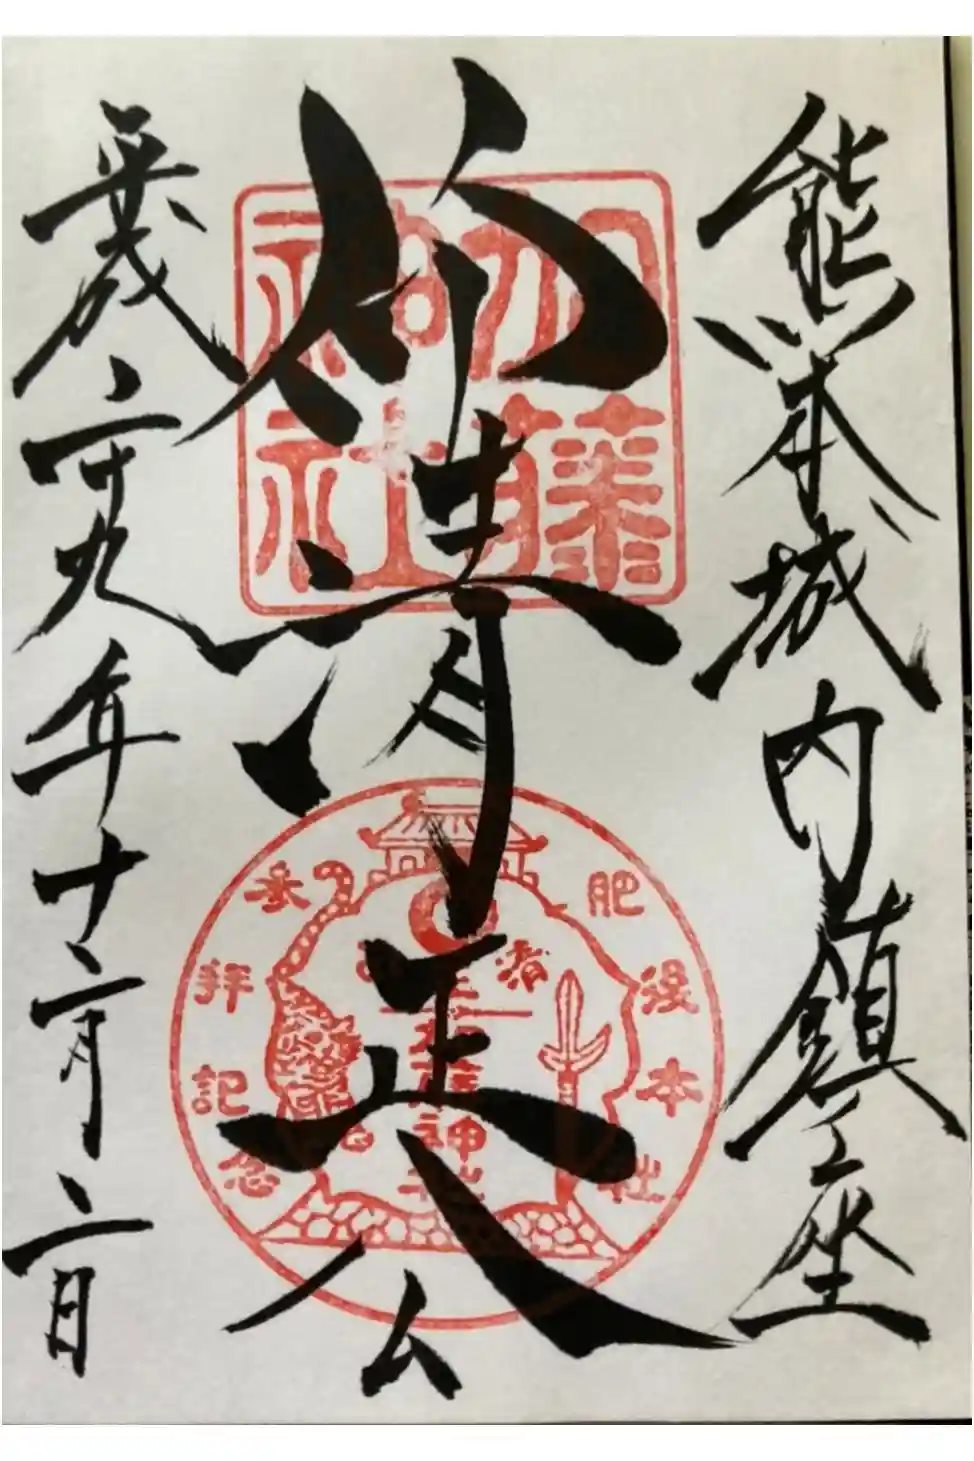 熊本城内鎮座
清正公
平成二十九年十二月二日
加藤
神社
肥後本社
参拝記念
加藤神社